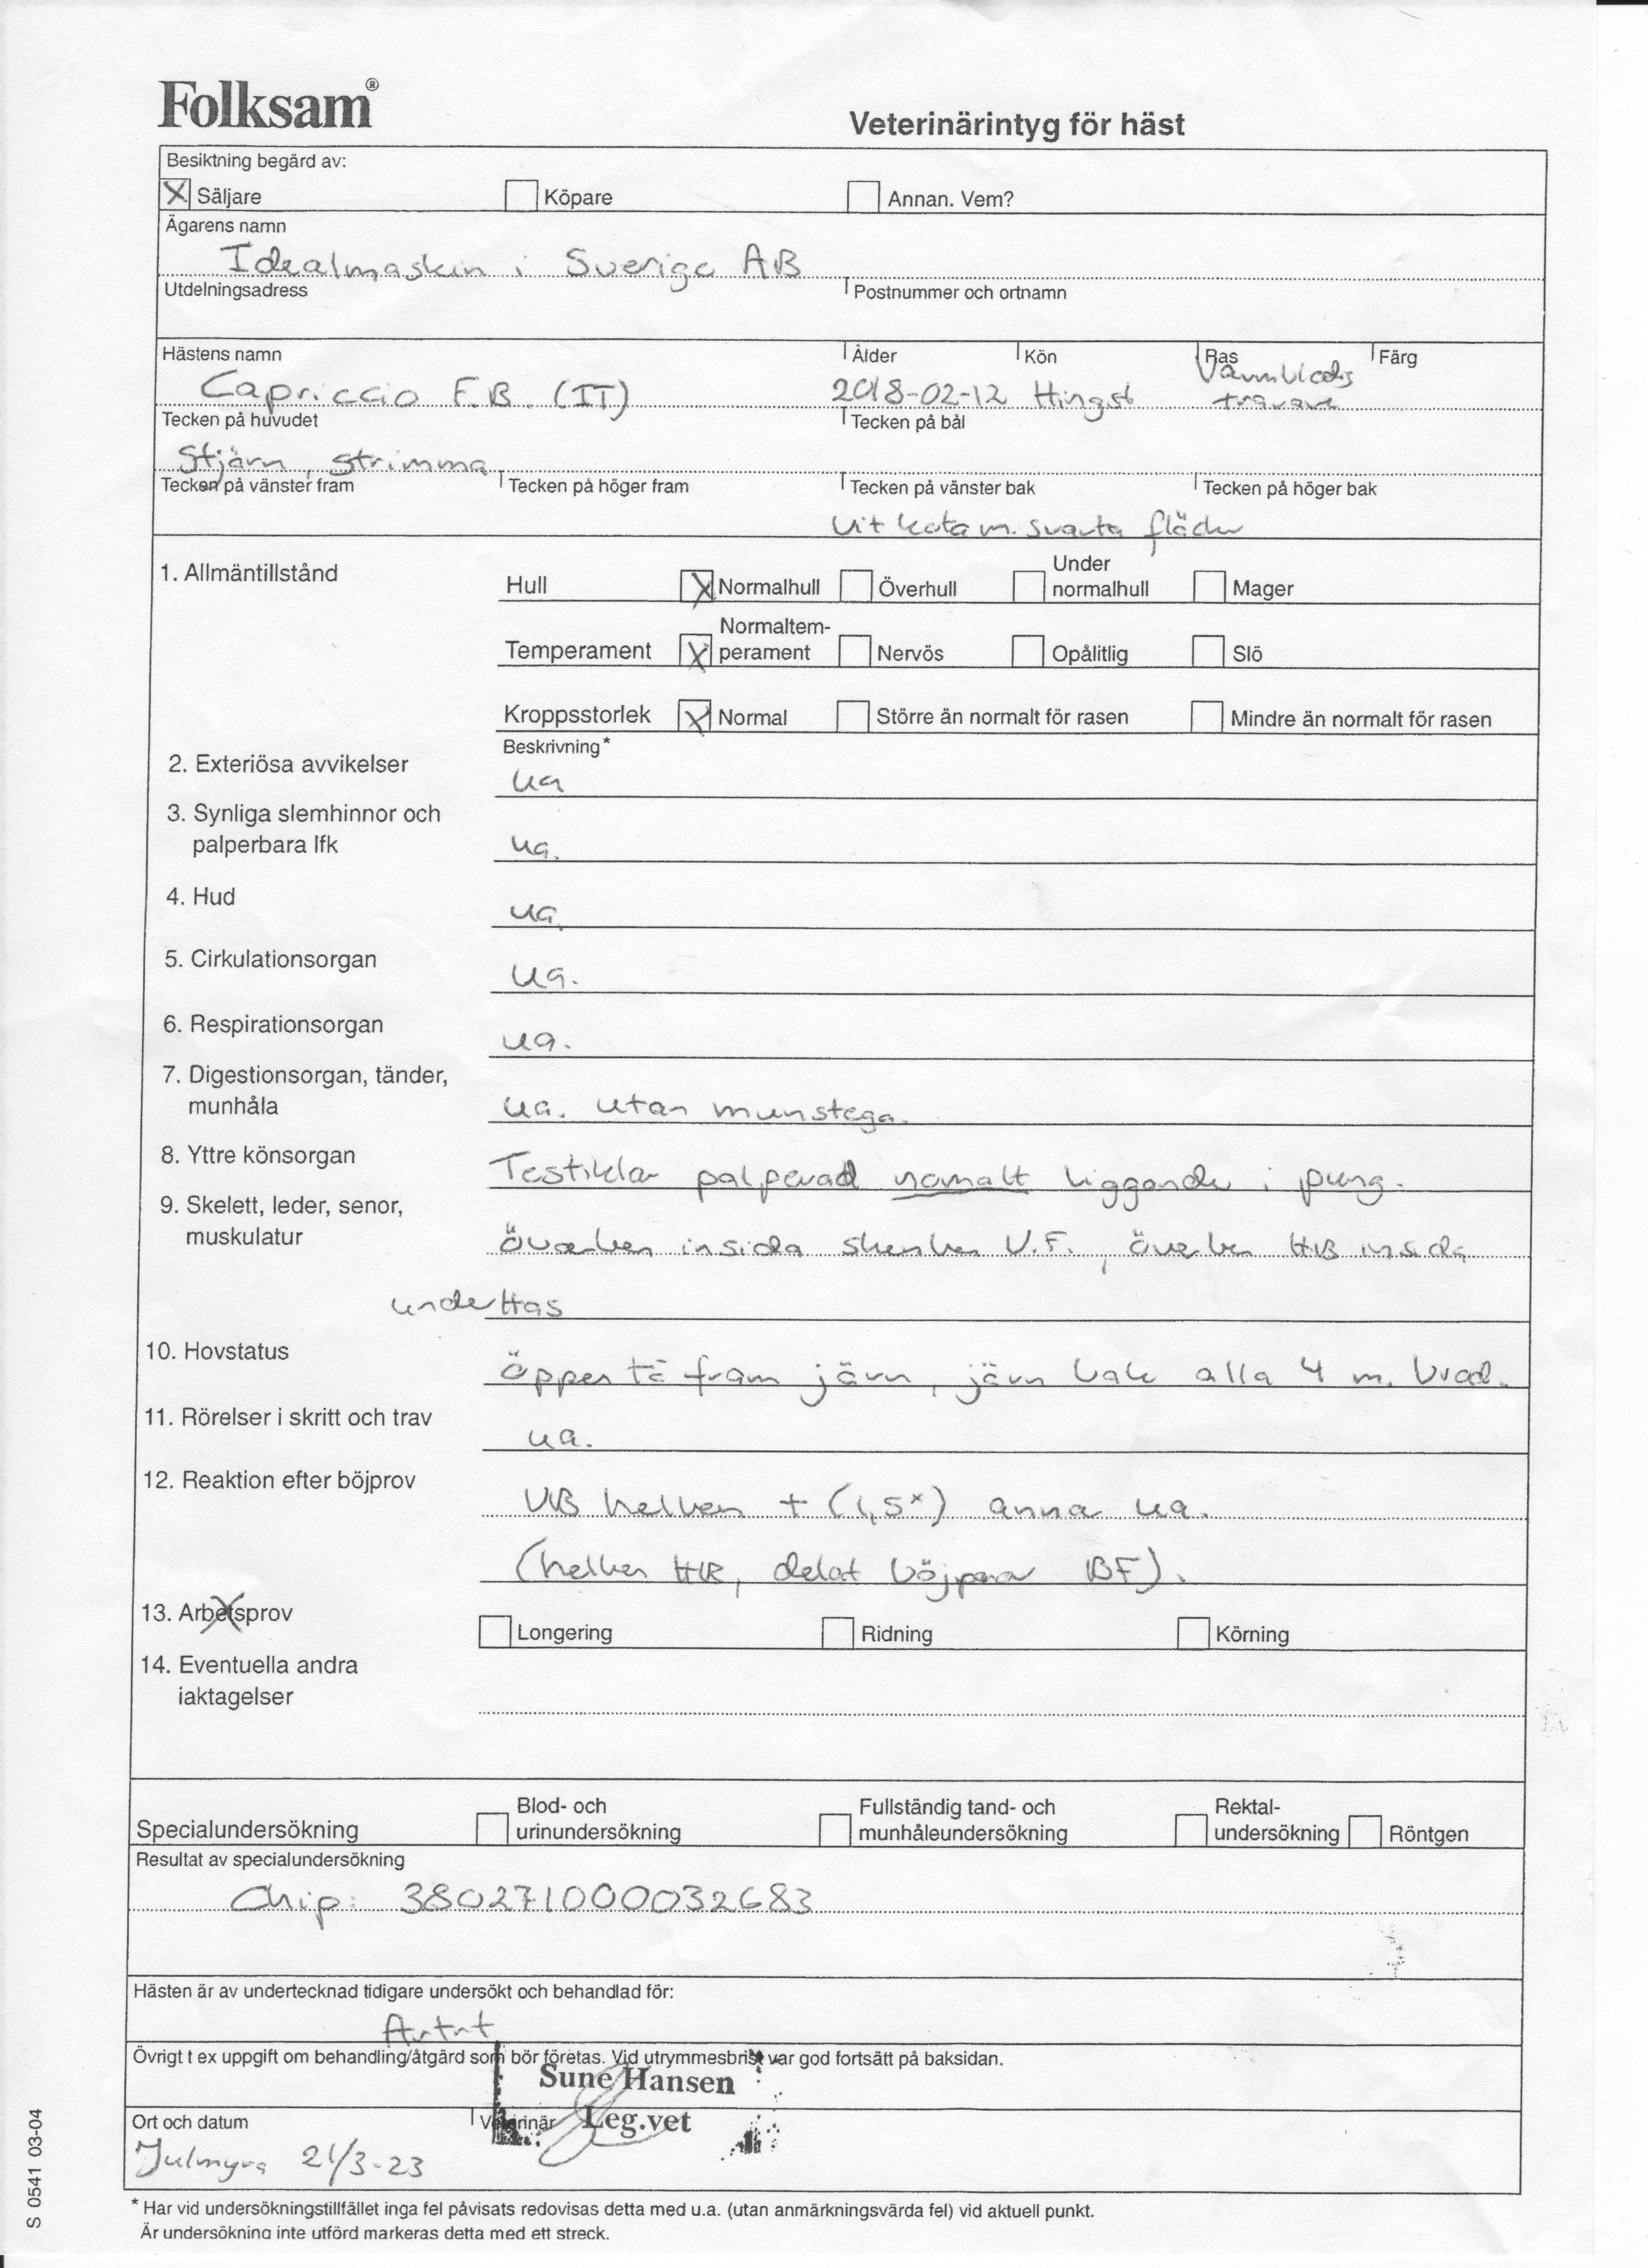 Folksam®
Veterinärintyg för häst
Besiktning begärd av:
X Säljare Köpare Annan. Vem?
Ägarens namn
Idealmaskin i Sverige AB
Utdelningsadress Postnummer och ortnamn
Hästens namn Ålder Kön Ras Färg
Capriccio F.B. (IT) 2018-02-12 Hingst Varmblodig travare
Tecken på huvudet Tecken på bål
Stjärn, strimma
Tecken på vänster fram Tecken på höger fram Tecken på vänster bak Tecken på höger bak
Vit kota m. svarta fläckar
1. Allmäntillstånd
Hull X Normalhull Överhull Under normalhull Mager
Temperament X Normaltem-perament Nervös Opålitlig Slö
Kroppsstorlek X Normal Större än normalt för rasen Mindre än normalt för rasen
Beskrivning*
2. Exteriösa avvikelser ua
3. Synliga slemhinnor och
palperbara lfk ua.
4. Hud ua.
5. Cirkulationsorgan ua.
6. Respirationsorgan ua.
7. Digestionsorgan, tänder,
munhåla ua. utan munstega.
8. Yttre könsorgan Testiklar palperad normalt liggande i pung.
9. Skelett, leder, senor,
muskulatur överben insida skenben V.F., överben HB insida
under Has
10. Hovstatus Öppen tå fram järn, järn bak alla 4 m. brod.
11. Rörelser i skritt och trav ua.
12. Reaktion efter böjprov VB helben + (1,5*) anna ua.
(helben HB, delat böjprov BF).
13. Arbetsprov Longering Ridning Körning
14. Eventuella andra
iaktagelser
Specialundersökning Blod- och urinundersökning Fullständig tand- och munhåleundersökning Rektal-undersökning Röntgen
Resultat av specialundersökning
Chip: 380271000032683
Hästen är av undertecknad tidigare undersökt och behandlad för:
Artrit
Övrigt t ex uppgift om behandling/åtgärd som bör företas. Vid utrymmesbrist var god fortsätt på baksidan.
Sune Hansen
Leg.vet
Ort och datum Veterinär
Julmyra 21/3-23
* Har vid undersökningstillfället inga fel påvisats redovisas detta med u.a. (utan anmärkningsvärda fel) vid aktuell punkt.
Är undersökning inte utförd markeras detta med ett streck.
S 0541 03-04